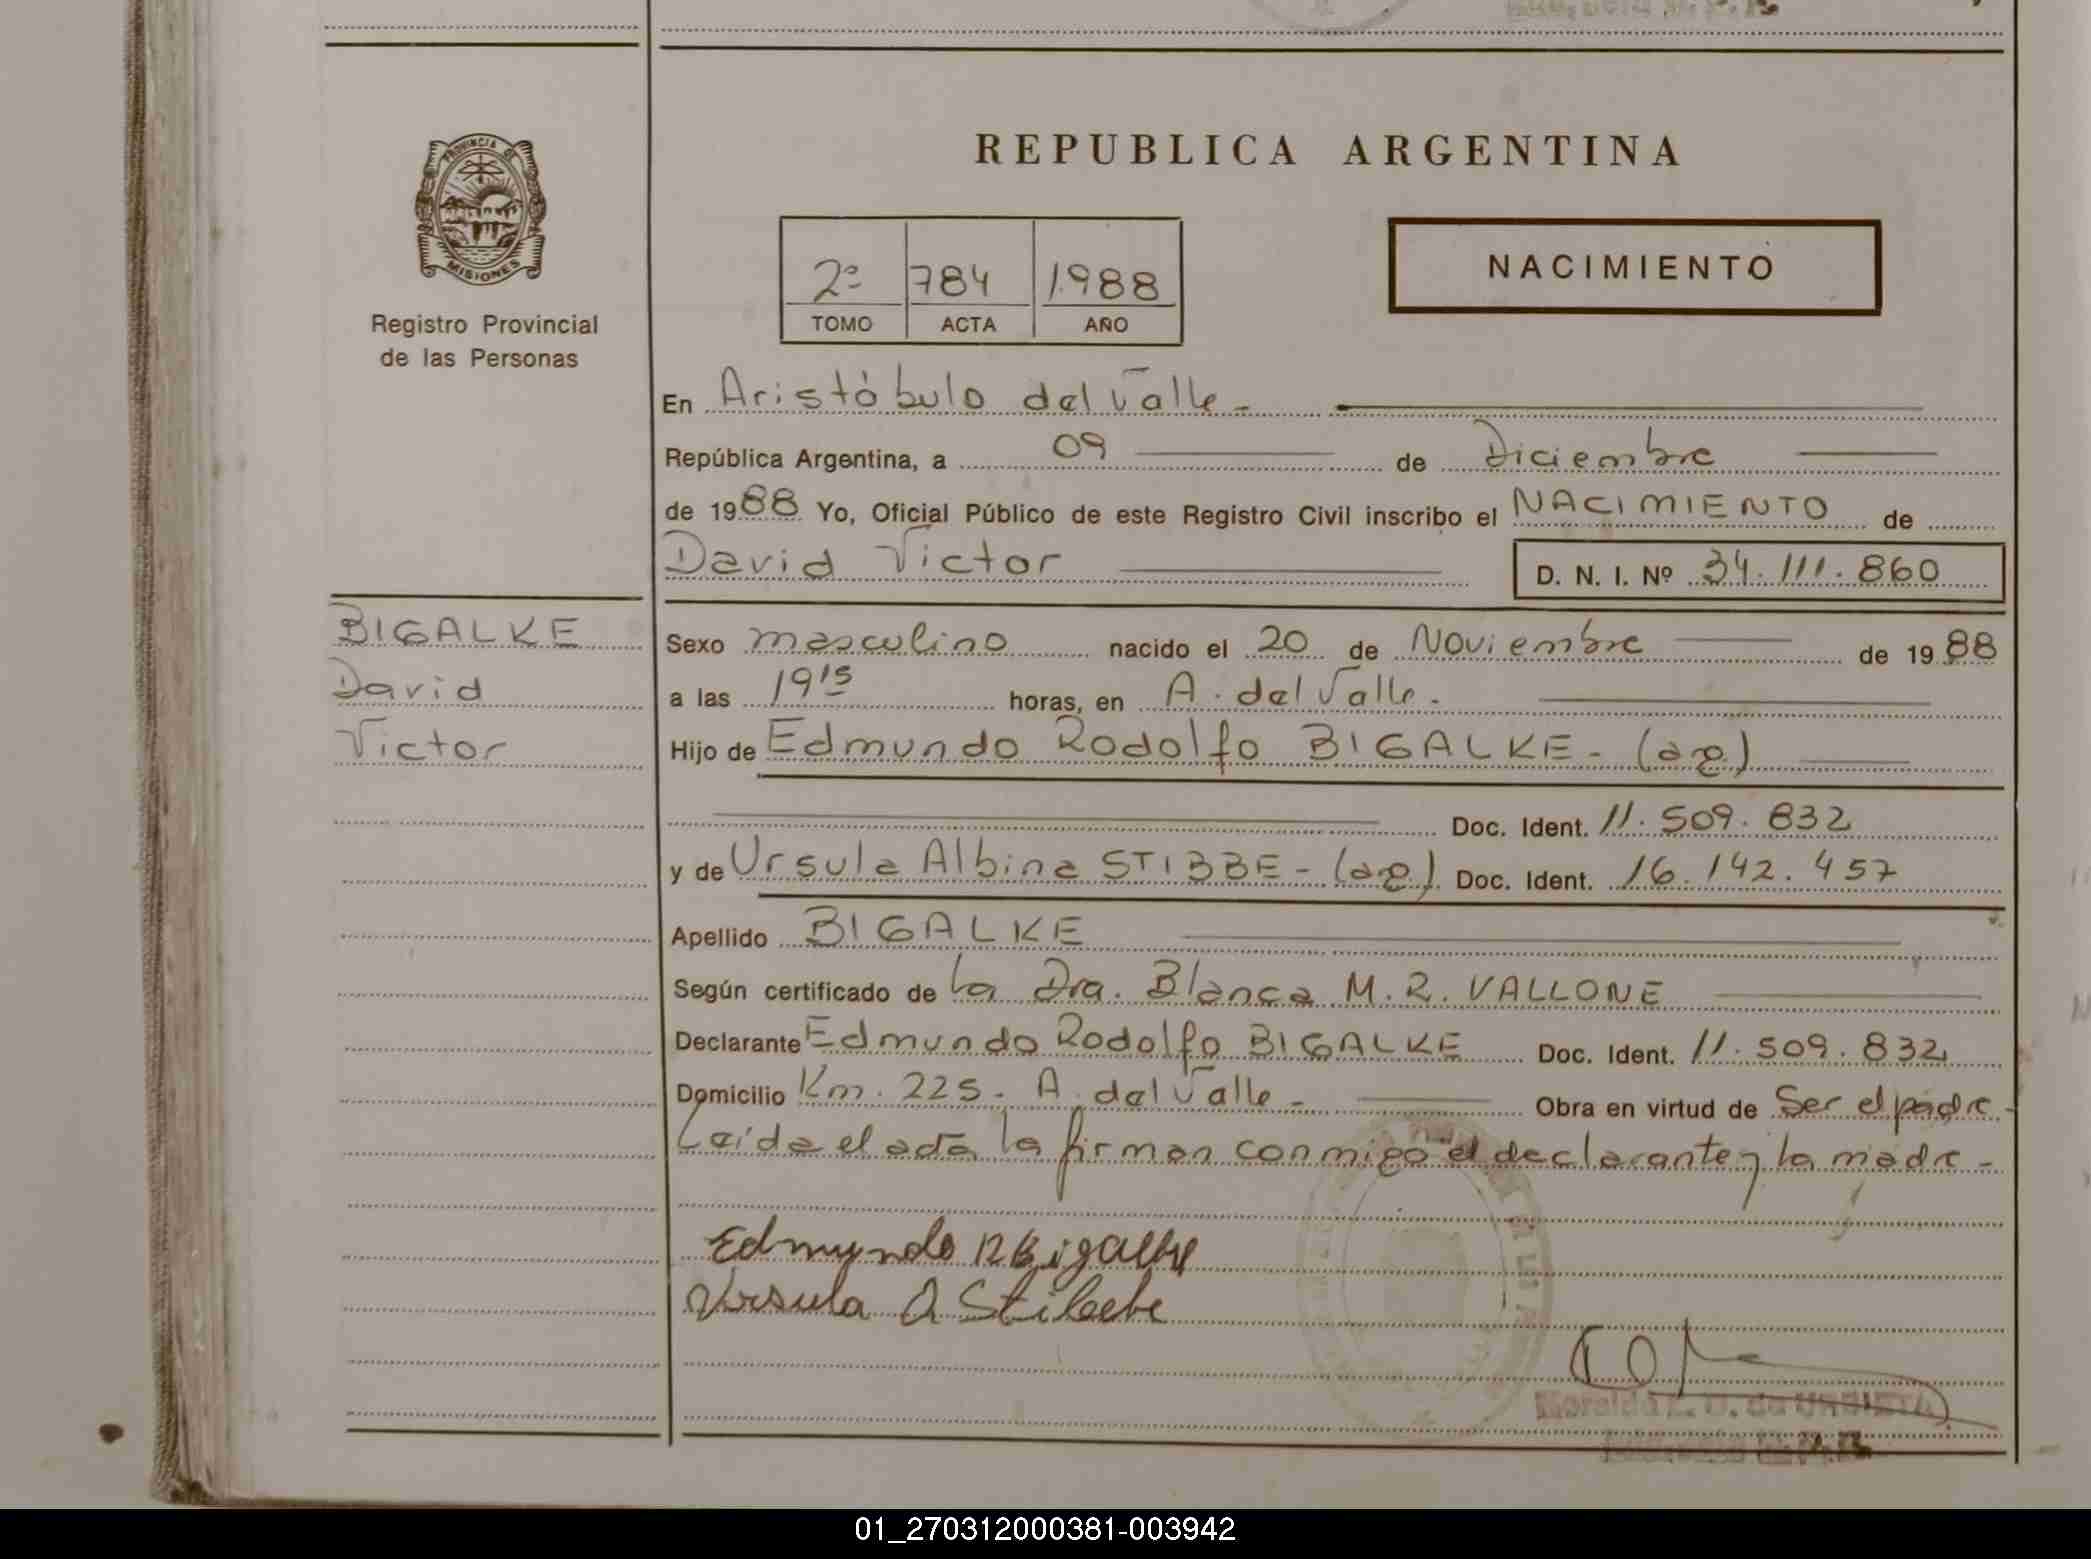 PROVINCIA DE
MISIONES
Registro Provincial
de las Personas
REPUBLICA ARGENTINA
2º 784 1988
TOMO ACTA AÑO
NACIMIENTO
En Aristóbulo del Valle.-
República Argentina, a 09 de Diciembre
de 1988 Yo, Oficial Público de este Registro Civil inscribo el NACIMIENTO de
David Victor D. N. I. Nº 34.111.860
BIGALKE
David
Victor
Sexo masculino nacido el 20 de Noviembre de 1988
a las 19 15 horas, en A. del Valle.
Hijo de Edmundo Rodolfo BIGALKE- (ag)
Doc. Ident. 11.509.832
y de Ursula Albina STIBBE- (ag) Doc. Ident. 16.142.457
Apellido BIGALKE
Según certificado de la Dra. Blanca M. R. VALLONE
Declarante Edmundo Rodolfo BIGALKE Doc. Ident. 11.509.832
Domicilio Km. 225. A. del Valle- Obra en virtud de Ser el padre.
Leída el acta la firman conmigo el declarante y la madre-
Edmundo R Bigalke
Ursula A Stibbe
de URBIETA
01_270312000381-003942